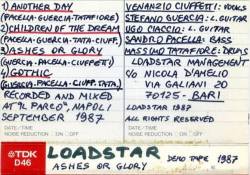 1) ANOTHER DAY
(PACELLA-GUERCIA-TATAFIORE)
2) CHILDREN OF THE DREAM
(PACELLA-GUERCIA-TATAF.)
3) ASHES OR GLORY
(GUERCIA-PACELLA-CIUFFETTI)
4) GOTHIC
(GUERCIA-PACELLA-CIUFF.TATA.)
RECORDED AND MIXED
AT "IL PARCO", NAPOLI
SEPTEMBER 1987
DATE/TIME
NOISE REDUCTION ON OFF
VENANZIO CIUFFETTI: VOCALS
STEFANO GUERCIA: L. GUITAR
UGO CIACCIO: L. GUITAR
SANDRO PACELLA: BASS
MASSIMO TATAFIORE: DRUMS
LOADSTAR MANAGEMENT
C/O NICOLA D'AMELIO
VIA GALIANI 20
70125 - BARI
LOADSTAR 1987
ALL RIGHTS RESERVED
DATE/TIME
NOISE REDUCTION ON OFF
TDK
D46
LOADSTAR
DEMO TAPE 1987
ASHES OR GLORY